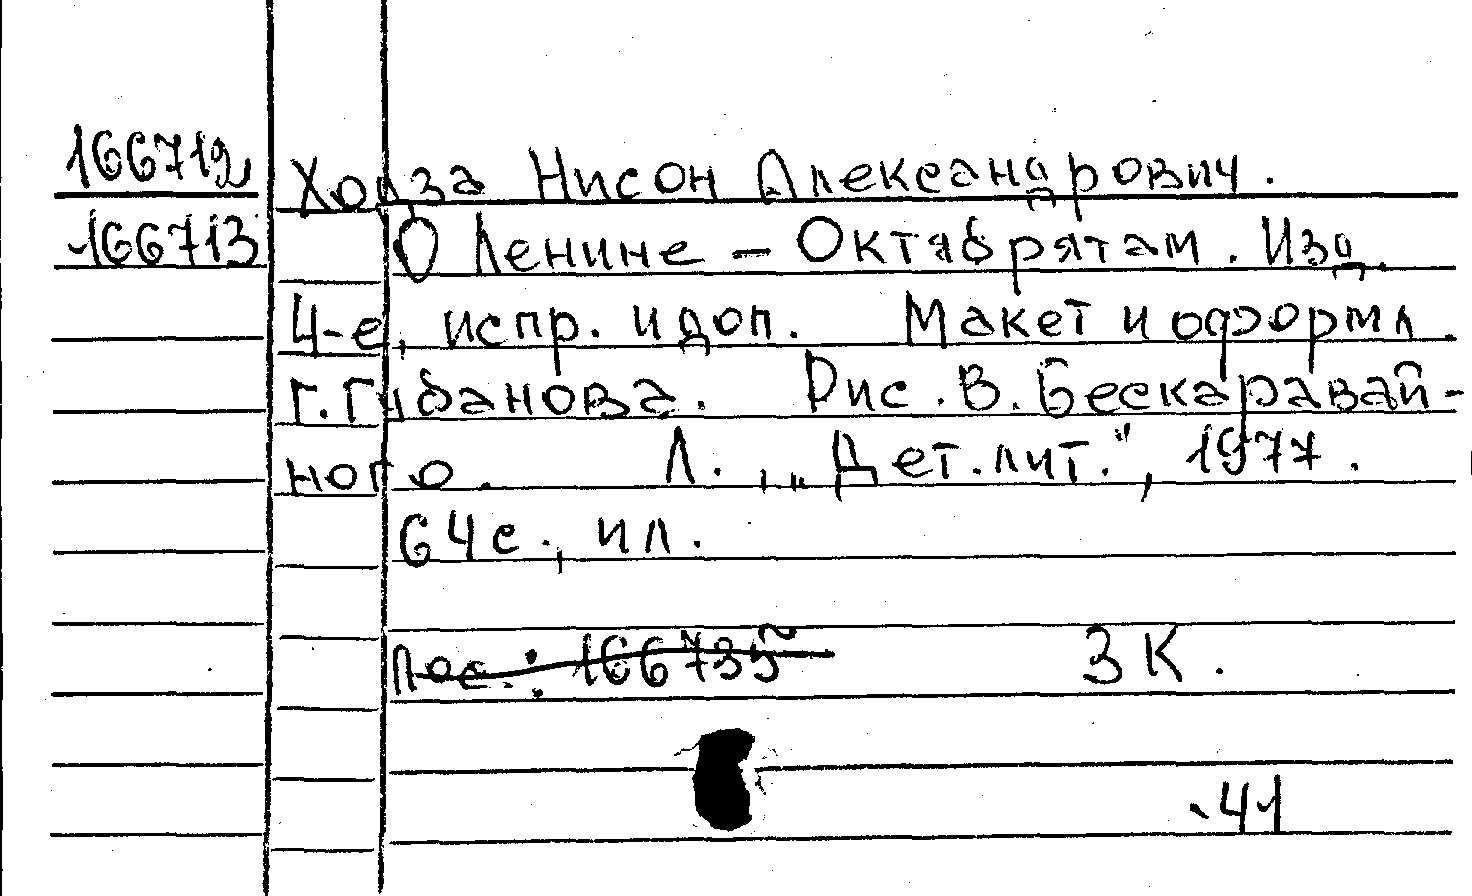 166712 Ходза Нисон Александрович.
166713 О Ленине – Октябрятам. Изд.
4-е, испр. и доп. Макет и оформл.
Г. Губанова. Рис. В. Бескаравай-
ного. Л., „Дет. лит.", 1977.
64 с., ил.
Пос.: 166735 3 К.
41